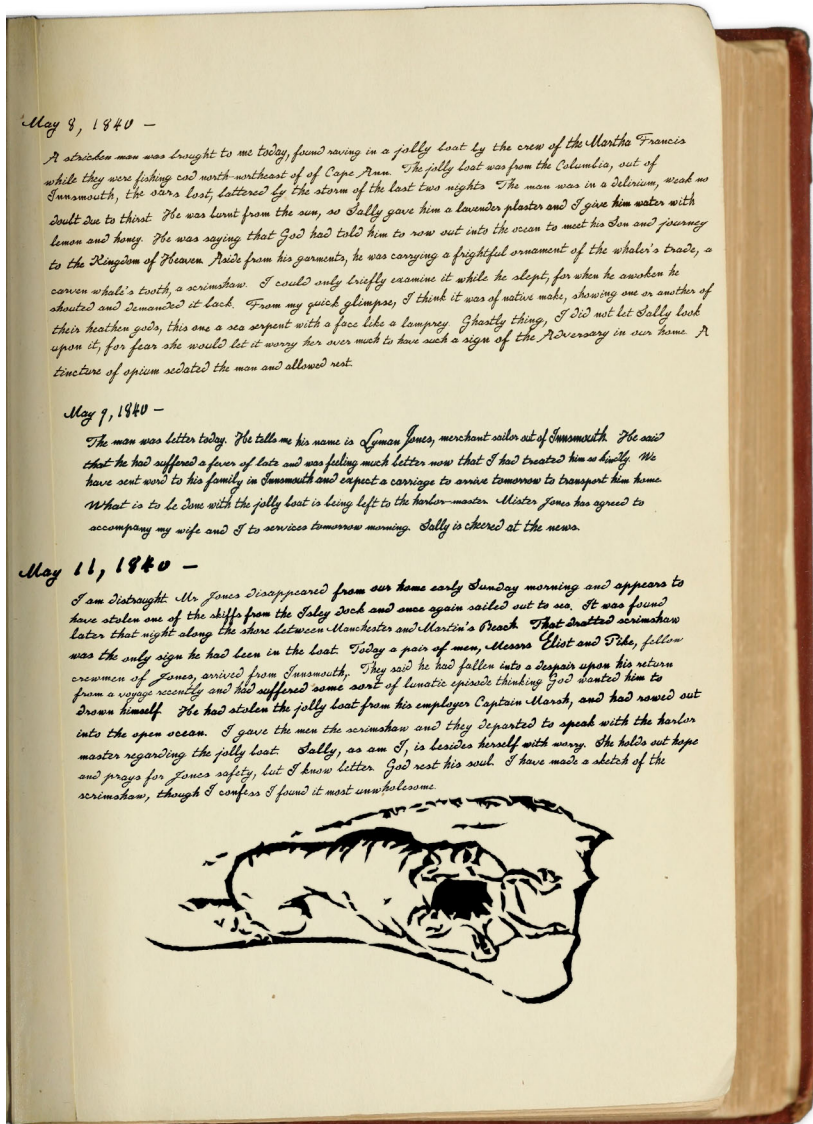 May 8, 1840 –
A stricken man was brought to me today, found raving in a jolly boat by the crew of the Martha Francis
while they were fishing cod north-northeast of of Cape Ann. The jolly boat was from the Columbia, out of
Innsmouth, the oars lost, battered by the storm of the last two nights. The man was in a delirium, weak no
doubt due to thirst. He was burnt from the sun, so Sally gave him a lavender plaster and I give him water with
lemon and honey. He was saying that God had told him to row out into the ocean to meet his Son and journey
to the Kingdom of Heaven. Aside from his garments, he was carrying a frightful ornament of the whaler's trade, a
carven whale's tooth, a scrimshaw. I could only briefly examine it while he slept, for when he awoken he
shouted and demanded it back. From my quick glimpse, I think it was of native make, showing one or another of
their heathen gods, this one a sea serpent with a face like a lamprey. Ghastly thing, I did not let Sally look
upon it, for fear she would let it worry her over much to have such a sign of the Adversary in our home. A
tincture of opium sedated the man and allowed rest.
May 9, 1840 –
The man was better today. He tells me his name is Lyman Jones, merchant sailor out of Innsmouth. He said
that he had suffered a fever of late and was feeling much better now that I had treated him so kindly. We
have sent word to his family in Innsmouth and expect a carriage to arrive tomorrow to transport him home.
What is to be done with the jolly boat is being left to the harbor-master. Mister Jones has agreed to
accompany my wife and I to services tomorrow morning. Sally is cheered at the news.
May 11, 1840 –
I am distraught. Mr Jones disappeared from our home early Sunday morning and appears to
have stolen one of the skiffs from the Isley dock and once again sailed out to sea. It was found
later that night along the shore between Manchester and Martin's Beach. That dratted scrimshaw
was the only sign he had been in the boat. Today a pair of men, Messrs Eliot and Pike, fellow
crewmen of Jones, arrived from Innsmouth,. They said he had fallen into a despair upon his return
from a voyage recently and had suffered some sort of lunatic episode thinking God wanted him to
drown himself. He had stolen the jolly boat from his employer Captain Marsh, and had rowed out
into the open ocean. I gave the men the scrimshaw and they departed to speak with the harbor
master regarding the jolly boat. Sally, as am I, is besides herself with worry. She holds out hope
and prays for Jones safety, but I know better. God rest his soul. I have made a sketch of the
scrimshaw, though I confess I found it most unwholesome.